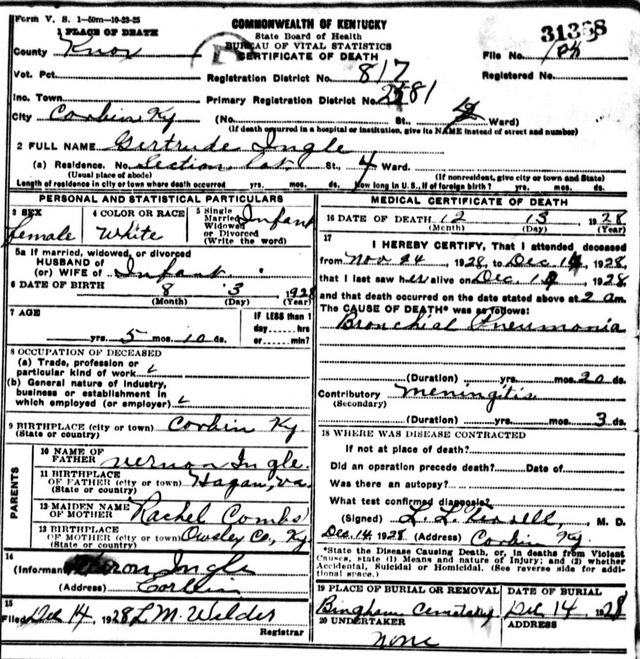 Form V. S. 1-50m-10-23-25
COMMONWEALTH OF KENTUCKY
State Board of Health
BUREAU OF VITAL STATISTICS
CERTIFICATE OF DEATH
31368
1 PLACE OF DEATH
County Knox
File No.
Vot. Pct.
Registration District No. 817
Registered No.
Inc. Town
Primary Registration District No. 2581
City Corbin Ky
(No. St., Ward)
(If death occurred in a hospital or institution, give its NAME instead of street and number)
2 FULL NAME Gertrude Ingle
(a) Residence. No. Section St., 4 Ward.
(Usual place of abode) (If nonresident, give city or town and State)
Length of residence in city or town where death occurred yrs. mos. ds. How long in U. S., if of foreign birth? yrs. mos. ds.
PERSONAL AND STATISTICAL PARTICULARS
3 SEX female
4 COLOR OR RACE White
5 Single Married Widowed or Divorced (Write the word) Infant
5a If married, widowed, or divorced
HUSBAND of
(or) WIFE of Infant
6 DATE OF BIRTH 8 3 1928
(Month) (Day) (Year)
7 AGE
yrs. 5 mos. 10 ds.
IF LESS than 1 day hrs or min?
8 OCCUPATION OF DECEASED
(a) Trade, profession or particular kind of work
(b) General nature of industry, business or establishment in which employed (or employer)
9 BIRTHPLACE (city or town) Corbin Ky
(State or country)
PARENTS
10 NAME OF FATHER Vernon Ingle
11 BIRTHPLACE OF FATHER (city or town) Hagan, Va.
(State or country)
12 MAIDEN NAME OF MOTHER Rachel Combs
13 BIRTHPLACE OF MOTHER (city or town) Owsley Co., Ky
(State or country)
14
(Informant Ingle
(Address) Corbin
15
Filed Dec 14, 1928 L M Wilder
Registrar
MEDICAL CERTIFICATE OF DEATH
16 DATE OF DEATH 12 13 1928
(Month) (Day) (Year)
17
I HEREBY CERTIFY, That I attended deceased
from Nov 24 1928, to Dec 1928,
that I last saw her alive on Dec 1928,
and that death occurred on the date stated above at 2 am.
The CAUSE OF DEATH* was as follows:
Bronchial Pneumonia
(Duration) yrs. mos. 20 ds.
Contributory Meningitis
(Secondary)
(Duration) yrs. mos. 3 ds.
18 WHERE WAS DISEASE CONTRACTED
If not at place of death?
Did an operation precede death? Date of
Was there an autopsy?
What test confirmed diagnosis?
(Signed) L. L. Terrell, M. D.
Dec. 14, 1928 (Address) Corbin Ky.
*State the Disease Causing Death, or, in deaths from Violent
Causes, state (1) Means and nature of Injury; and (2) whether
Accidental, Suicidal or Homicidal. (See reverse side for addi-
tional space.)
19 PLACE OF BURIAL OR REMOVAL DATE OF BURIAL
Bingham Cemetary Dec 14 1928
20 UNDERTAKER ADDRESS
none